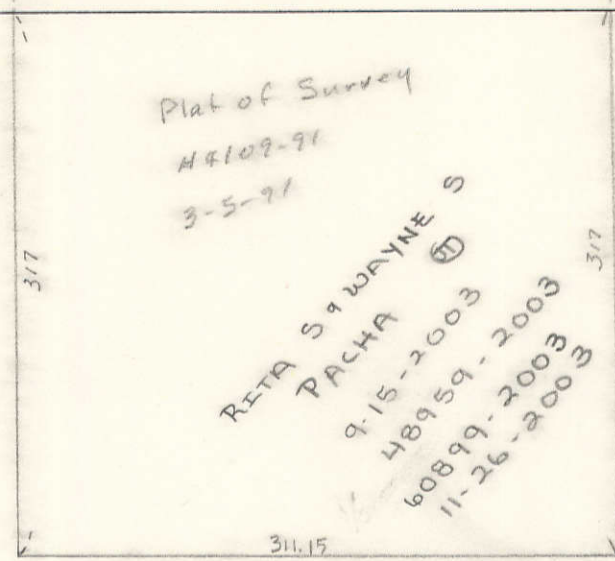 Plat of Survey
3-5-91
317
317
RITA S & WAYNE S
PACHA JT
9-15-2003
48959-2003
60899-2003
11-26-2003
311.15